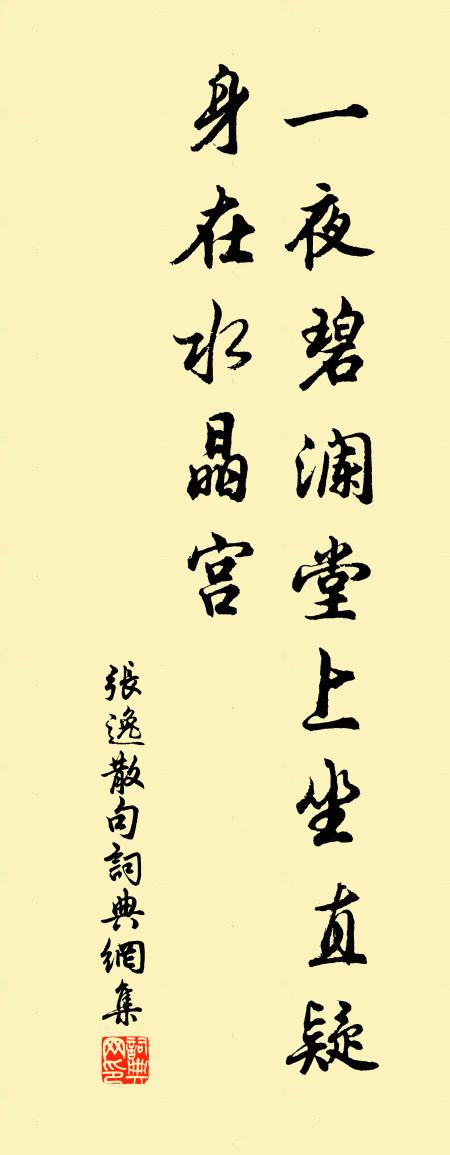 一夜碧澜堂上坐直疑
身在水晶宫
張逸散句詞典網集
詞典网印